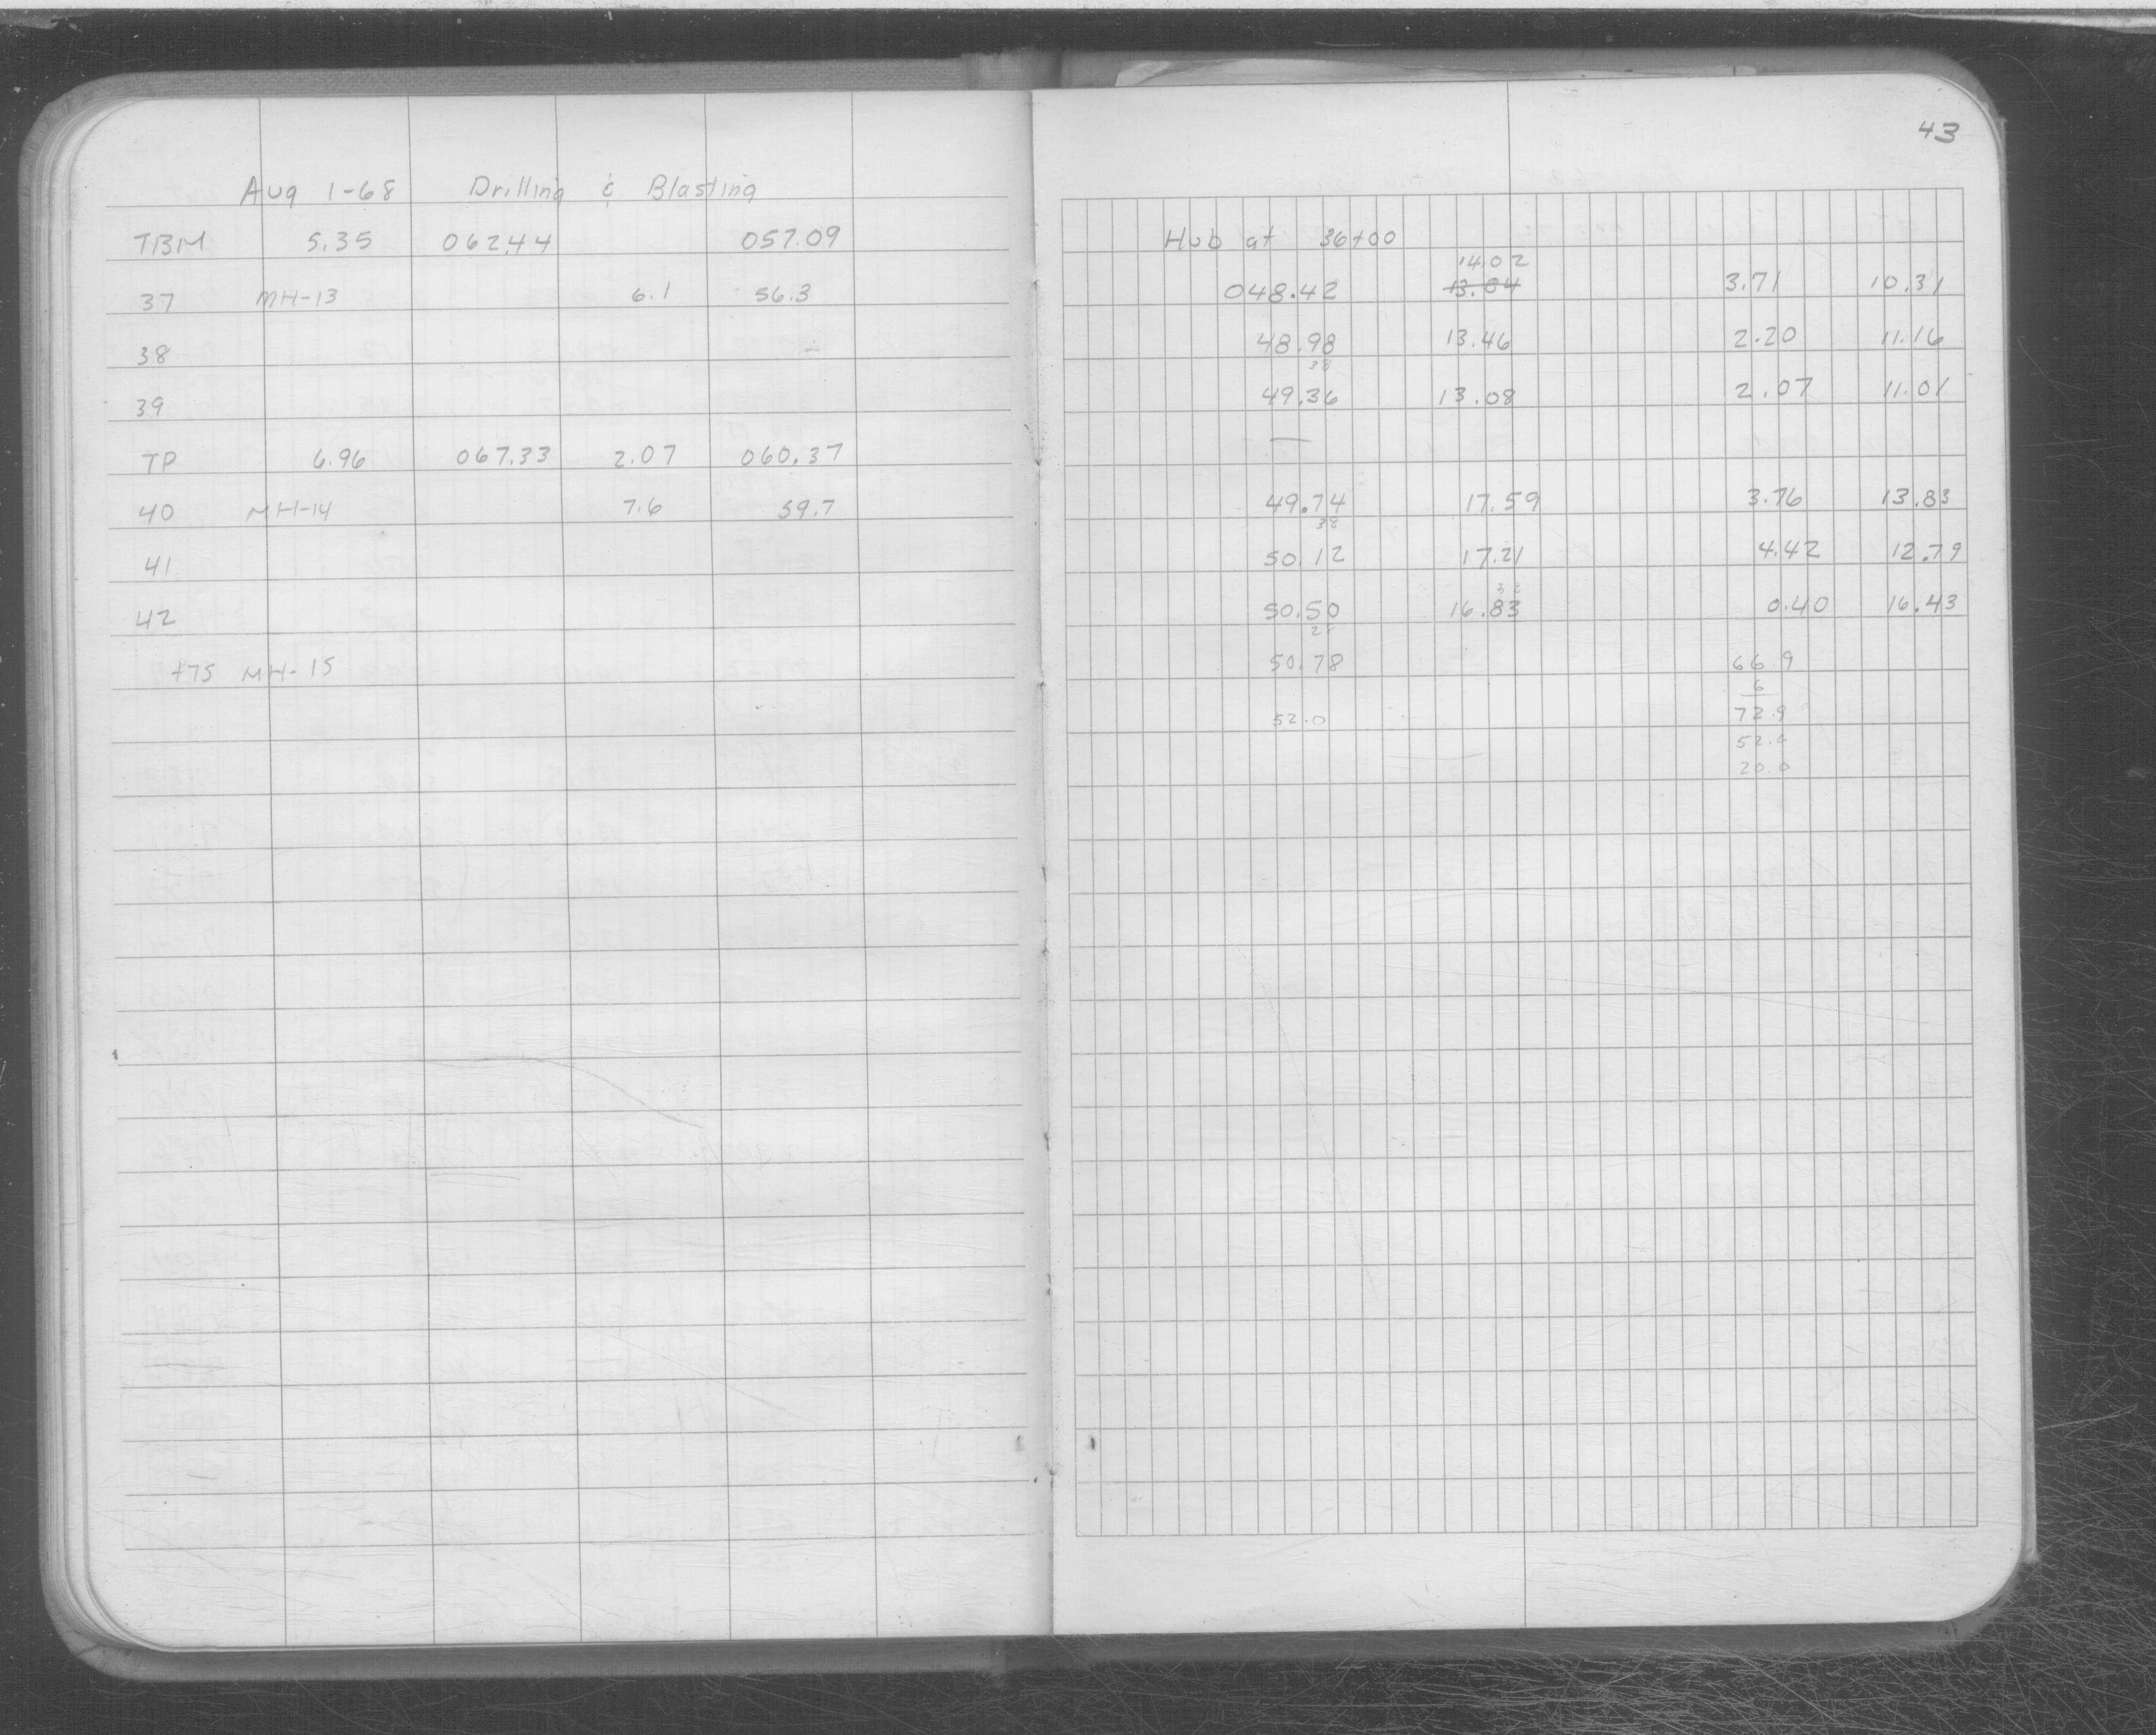 43
Aug 1-68 Drilling & Blasting
TBM 5.35 062.44 057.09 Hub at 36+00
14.02
37 MH-13 6.1 56.3 048.42 13.84 3.71 10.31
38 48.98 13.46 2.20 11.16
38
39 49.36 13.08 2.07 11.01
TP 6.96 067.33 2.07 060.37 —
40 MH-14 7.6 59.7 49.74 17.59 3.76 13.83
38
41 50.12 17.21 4.42 12.79
38
42 50.50 16.83 0.40 16.43
28
+75 MH-15 50.78 66.9
6
52.0 72.9
52.
20.0